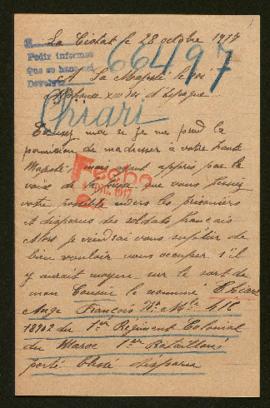 La Ciotat le 28 octobre 1917
Pedir informes
Que se haga
Devolver
66497
A Sa Majesté le roi
Alphonse XIII d'Espagne
Chiari
Excusez moi si je me prend la
permission de m'adresser à votre haute
Majesté mais ayant appris par la
voix de la que vous
votre les prisoniers
et disparus des soldats français
Alors je viendrai vous suplier de
bien vouloir vous occuper s'il
y aurait moyen sur le sort de
mon Cousin le nommé Chiari
Ange François Nº Mle
18902 du 1er Régiment Colonial
du Maroc 1er Bataillons
porté disparu
Fecho
1917